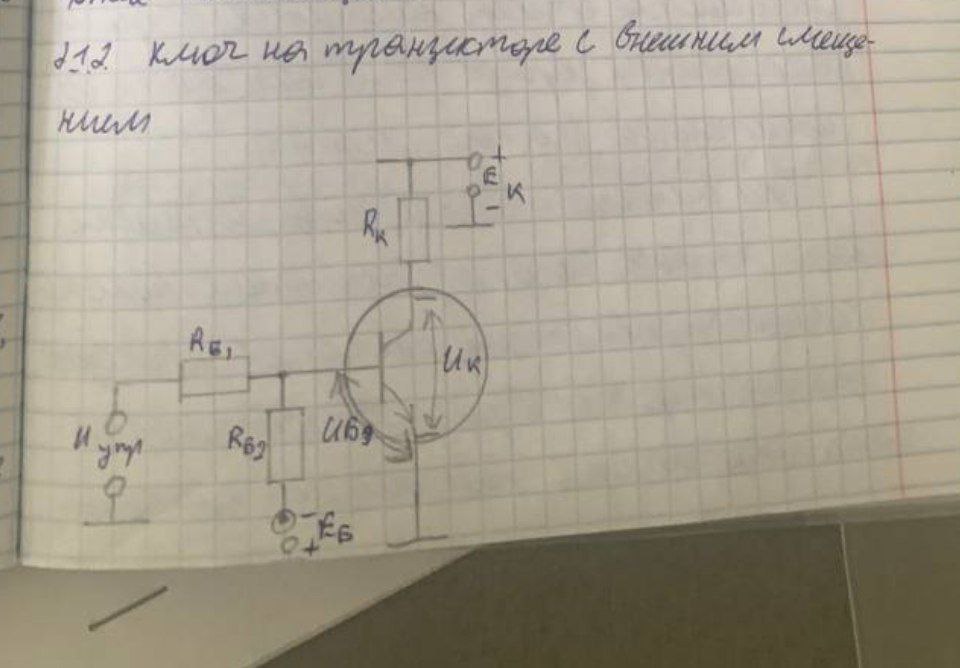 2.1.2. Ключ на транзисторе с внешним смеще-
нием
+
E К
-
Rк
RБ1
Uк
Uупр
RБ2
UБЭ
- EБ
+